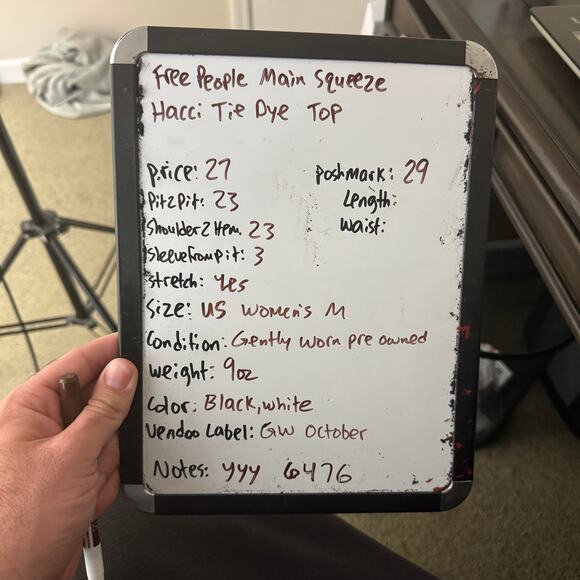 Free People Main Squeeze
Hacci Tie Dye Top
Price: 27
Poshmark: 29
Pit2Pit: 23
Length:
Shoulder2Hem: 23
Waist:
Sleevefrompit: 3
Stretch: Yes
Size: US Women's M
Condition: Gently worn pre owned
Weight: 9oz
Color: Black, white
Vendoo Label: GW October
Notes: yyy 6476